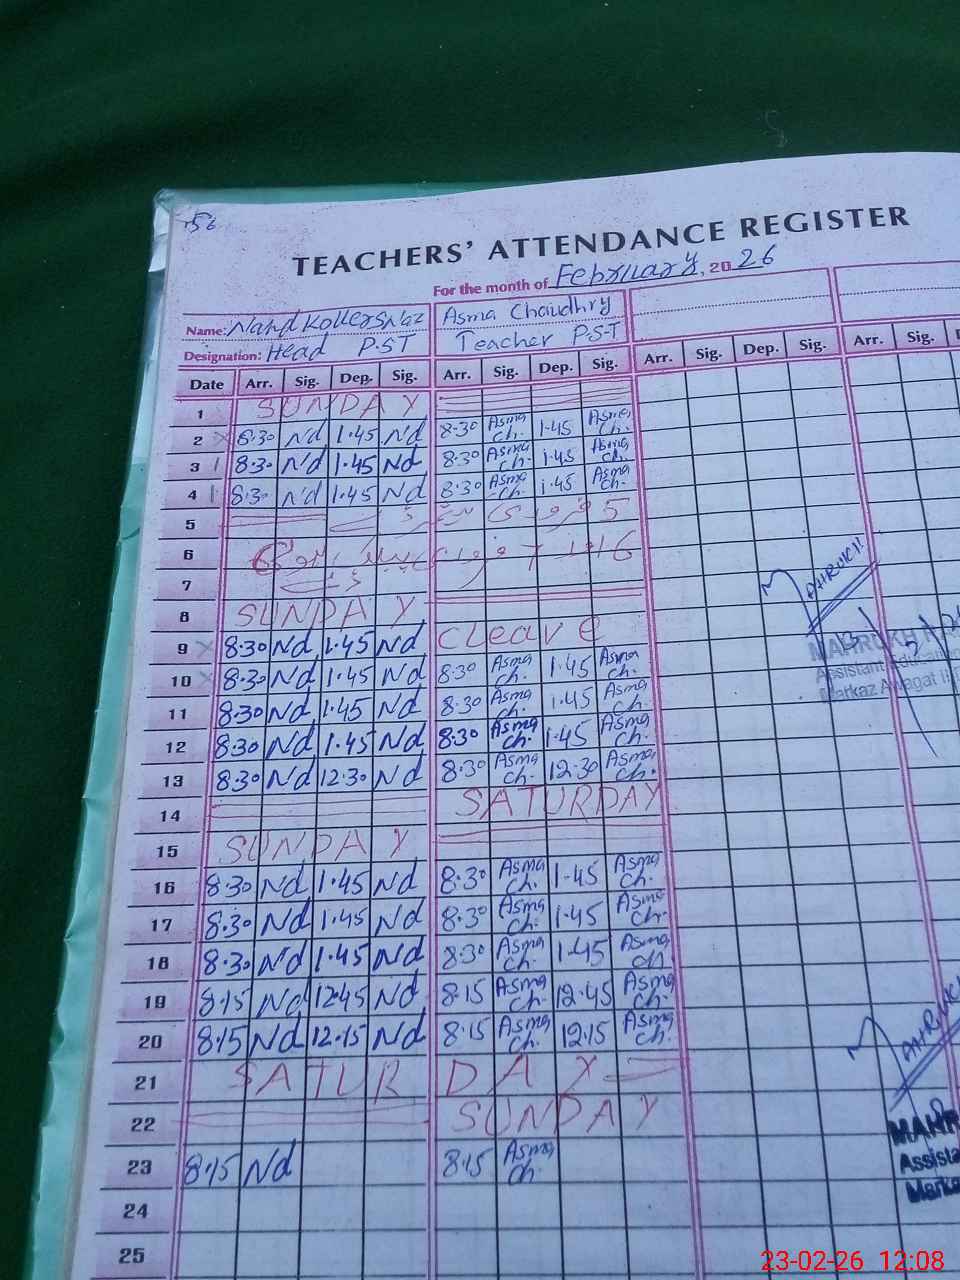 56
TEACHERS' ATTENDANCE REGISTER
For the month of February, 2026
Name: Asma Chaudhry
Designation: Head P.S.T Teacher P.S.T
Date Arr. Sig. Dep. Sig. Arr. Sig. Dep. Sig. Arr. Sig. Dep. Sig. Arr. Sig.
1 SUNDAY
2 8.30 Nd 1.45 Nd 8.30 Asma Ch. 1.45 Asma Ch.
3 8.30 Nd 1.45 Nd 8.30 Asma Ch. 1.45 Asma Ch.
4 8.30 Nd 1.45 Nd 8.30 Asma Ch. 1.45 Asma Ch.
5
6
7
8 SUNDAY
9 8.30 Nd 1.45 Nd Cleave
10 8.30 Nd 1.45 Nd 8.30 Asma Ch. 1.45 Asma Ch.
11 8.30 Nd 1.45 Nd 8.30 Asma Ch. 1.45 Asma Ch.
12 8.30 Nd 1.45 Nd 8.30 Asma Ch. 1.45 Asma Ch.
13 8.30 Nd 12.30 Nd 8.30 Asma Ch. 12.30 Asma Ch.
14 SATURDAY
15 SUNDAY
16 8.30 Nd 1.45 Nd 8.30 Asma Ch. 1.45 Asma Ch.
17 8.30 Nd 1.45 Nd 8.30 Asma Ch. 1.45 Asma Ch.
18 8.30 Nd 1.45 Nd 8.30 Asma Ch. 1.45 Asma Ch.
19 8.15 Nd 12.45 Nd 8.15 Asma Ch. 12.45 Asma Ch.
20 8.15 Nd 12.15 Nd 8.15 Asma Ch. 12.15 Asma Ch.
21 SATURDAY
22 SUNDAY
23 8.15 Nd 8.15 Asma Ch.
24
25
MAHRUKH
Assistant
Markaz
23-02-26 12:08